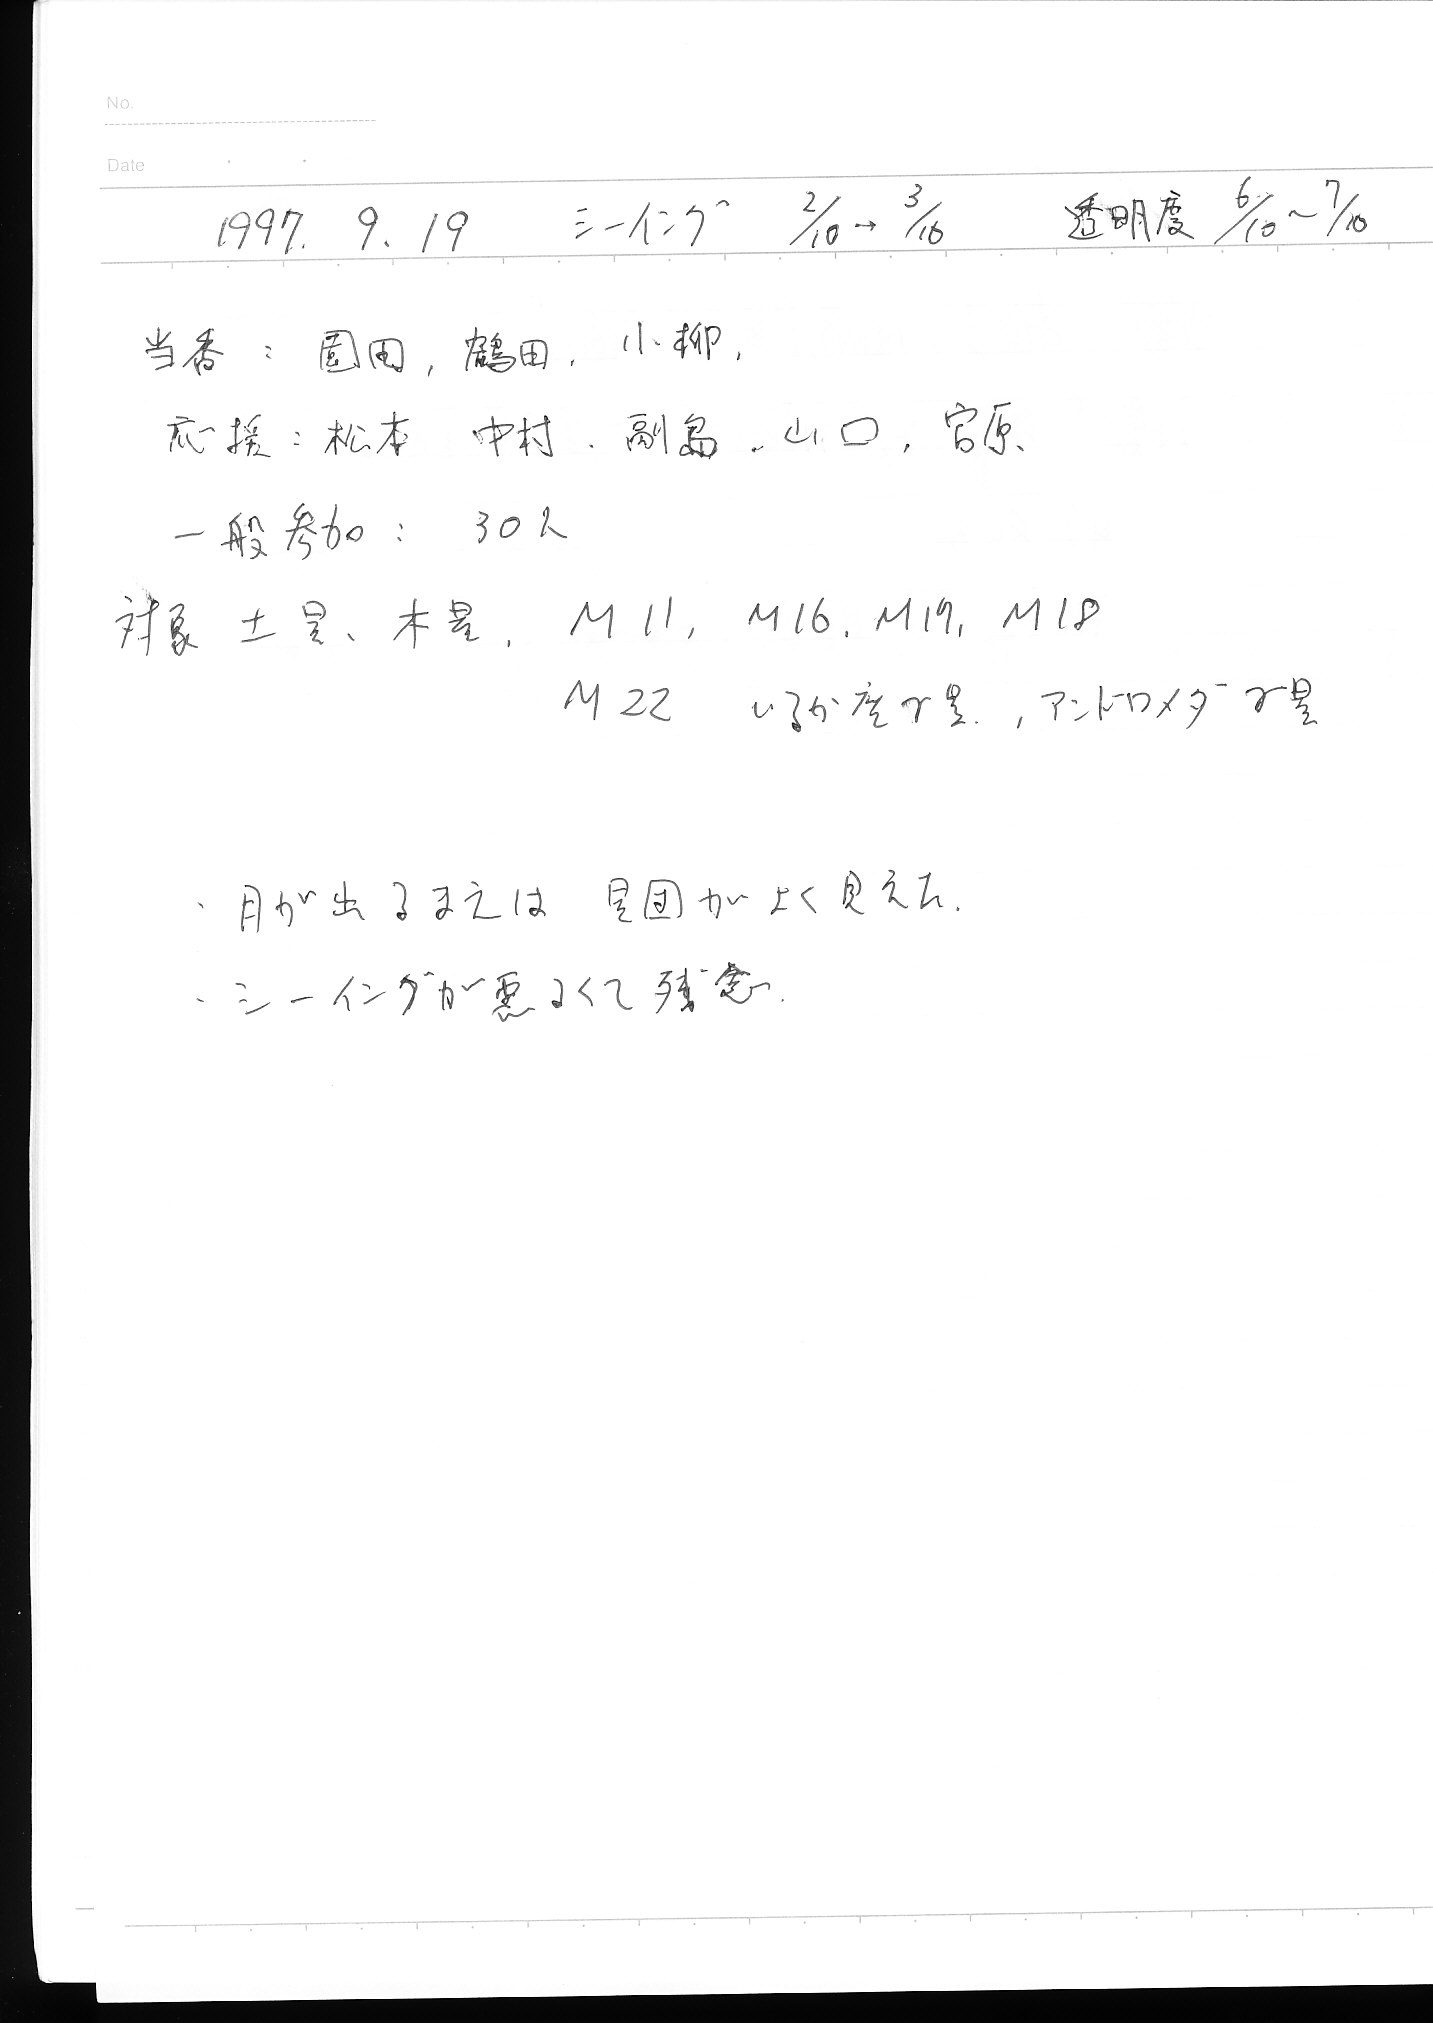 No.
Date
1997. 9. 19 シーイング 2/10→3/10 透明度 6/10～7/10
当番：園田，鶴田．小柳，
応援：松本 中村．副島．山口，宮原、
一般参加： 30人
対象 土星、木星． M11, M16. M17, M18
M22 いるか座γ星．，アンドロメダγ星
・月が出るまえは 星団がよく見えた．
・シーイングが悪るくて残念．